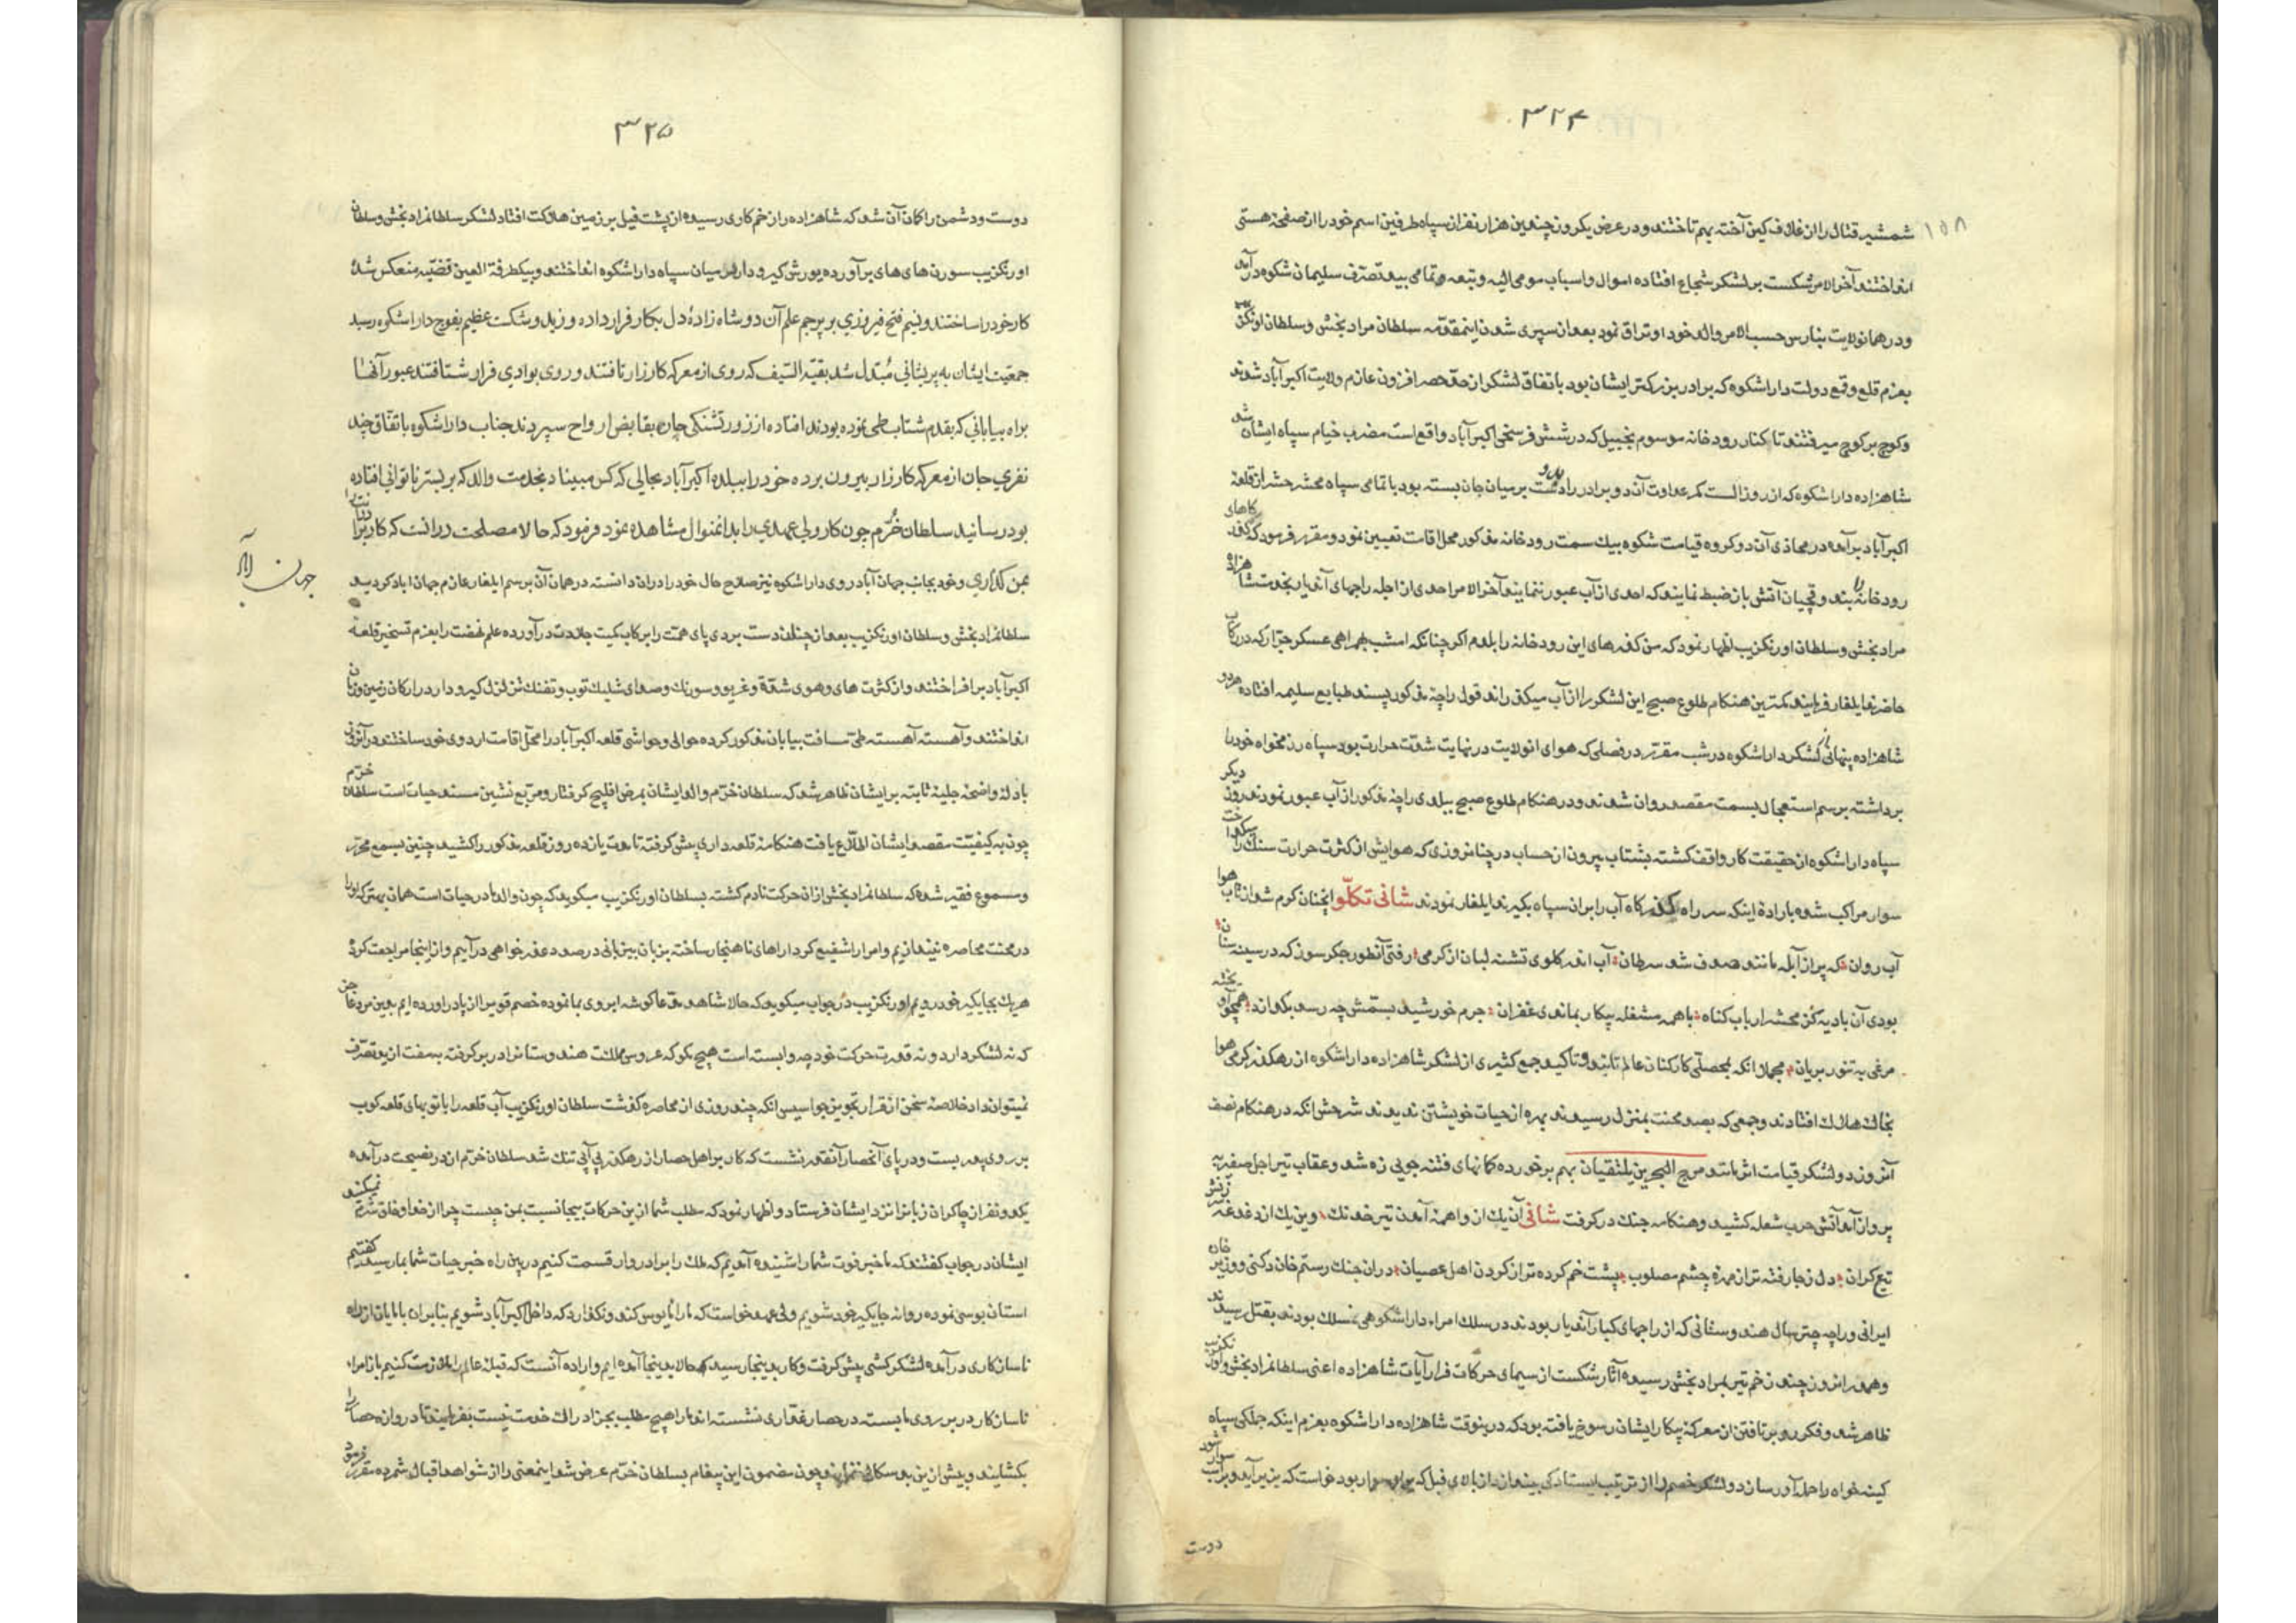 ۳۲۴
۱۵۸
شمشیر قتال را از غلاف کین آخته بهم تاختند و در عرض یکروز چندین هزار نفر از سپاه طرفین اسم خود را از صفحهٔ هستی
انداختند آخر الامر شکست بر لشکر شجاع افتاده اموال و اسباب مومی الیه و تبعه و تمامی بید تصرف سلیمان شکوه در آمد
و در همان ولایت بنارس حسب الامر والد خود اوتراق نمود بعد از سپری شدن اینمقدمه سلطان مراد بخش و سلطان اورنگزیب
بعزم قلع و قمع دولت داراشکوه که برادر بزرگتر ایشان بود باتفاق لشکر از حد حصر افزون عازم ولایت اکبرآباد شدند
و کوچ بر کوچ میرفتند تا کنار رودخانه موسوم بچنبل که در شش فرسخی اکبرآباد واقع است مضرب خیام سپاه ایشان شد
شاهزاده داراشکوه که از روز الست کمر عداوت آن دو برادر را بدو دست بر میان جان بسته بود با تمامی سپاه محشر حشر از قلعهٔ
اکبرآباد برآمده در محاذی آن دو کروه قیامت شکوه بیک سمت رودخانه مذکور محل اقامت تعیین نمود و مقرر فرمود که گذرگاهای
رودخانه را بند و قچیان آتش باز ضبط نمایند که احدی از آب عبور ننمایند آخر الامر احدی از اجله راجهای آندیار بخدمت شاهزاده
مراد بخش و سلطان اورنگزیب اظهار نمود که من گذرهای این رودخانه را بلدم اگر چنانکه امشب بهمراهی عسکر جرار که در رکاب
حاضرند ایلغار فرمایند کمترین هنگام طلوع صبح این لشکر را از آب میگذراند قول راجهٔ مذکور پسند طبایع سلیمه افتاده هر دو
شاهزاده پنهانی از لشکر داراشکوه در شب مقرر در فصلی که هوای انولایت در نهایت شدت حرارت بود سپاه رزمخواه خود را
برداشته برسم استعجال بسمت مقصد روان شدند و در هنگام طلوع صبح ببلدی راجهٔ مذکور از آب عبور نمودند روز دیگر
سپاه داراشکوه از حقیقت کار واقف گشته بشتاب بیرون از حساب در چنان روزی که هوایش از کثرت حرارت سنگ را میگداخت
سوار مراکب شده بارادهٔ اینکه سر راه گذرگاه آب را بر ان سپاه بگیرند ایلغار نمودند شانی تکلو انچنان گرم شد از تاب هوا
آب روان که پر از آبله مانند صدف شد سرطان آب اند گلوی تشنه لبان از گرمی رفتی آنطور جگر سوز که در سینه سنان
بودی آن بادیه گز محشر ارباب گناه با همه مشغله پیکار بماندی غفران جرم خورشید بسمتش چه رسد بگدازد همچو آویخته
مرغی به تنور بریان مجملا انکه بمحصلی کارکنان عالم تائید و تاکید جمع کثیری از لشکر شاهزاده داراشکوه از رهگذر گرمی هوا
بخاک هلاک افتادند و جمعی که بصد محنت بمنزل رسیدند بهره از حیات خویشتن ندیدند شرحش انکه در هنگام نصف
آنروز دو لشکر قیامت اثر مانند مرج البحرین یلتقیان بهم بر خورده کمانهای فتنه جویی زه شد و عقاب تیر اجل صفیر به
پرواز آمد آتش حرب شعله کشید و هنگامه جنگ در گرفت شانی آن یک از واهمهٔ آمدن تیر خدنگ وین یک از دغدغهٔ زنش
تیغ گران دل ز جا رفته تر از مهرهٔ چشم مصلوب پشت خم کرده تر از گردن اهل عصیان در ان جنگ رستم خان دکنی و وزیر خان
ایرانی و راجه چترسال هندوستانی که از راجهای کبار آندیار بودند در سلک امراء داراشکوهی منسلک بودند بقتل رسیدند
و همدر انروز چند زخم تیر بمراد بخش رسیده آثار شکست از سیمای حرکات فرار آیات شاهزاده اعنی سلطانمراد بخش و اورنگزیب
ظاهر شد و فکر رو برتافتن از معرکهٔ پیکار ایشان رسوخ یافته بود که درینوقت شاهزاده داراشکوه بعزم اینکه جملگی سپاه
کینه خواه را حمله آور سازد و لشکر خصم را از ترتیب ایستادگی بیندازد از بالای فیل که بران سوار بود خواست که بزیر آید و بر اسب سوار شود
دوست
۳۲۵
دوست و دشمن را گمان آن شد که شاهزاده را زخم کاری رسیده از پشت فیل بر زمین هلاکت افتاد لشکر سلطانمراد بخش و سلطان
اورنگزیب سورن های های برآورده یورش گیر و دار در میان سپاه داراشکوه انداختند و بیکطرفة العین قضیه منعکس شده
کار خود را ساختند و نسیم فتح فیروزی بر پرچم علم آن دو شاهزادهٔ دل بکار قرار داده وزید و شکست عظیم بفوج داراشکوه رسید
جمعیت ایشان به پریشانی مبدل شد بقیة السیف که روی از معرکه کارزار تافتند و روی بوادی فرار شتافتند عبور آنها
براه بیابانی که بقدم شتاب طی نموده بودند افتاده از زور تشنگی جان بقابض ارواح سپردند جناب داراشکوه باتفاق چند
نفری جان از معرکه کارزار بیرون برده خود را ببلده اکبرآباد بحالی که کس مبیناد بخدمت والد که بر بستر ناتوانی افتاده
بود رسانید سلطان خرم چون کار ولی عهدی را بدانمنوال مشاهده نمود فرمود که حالا مصلحت در انست که کار برادرانت را
بمن گذاری و خود بجانب جهان آباد روی داراشکوه نیز صلاح حال خود را در ان دانسته در همان آن برسم ایلغار عازم جهان اباد گردید
جهان آباد
سلطانمراد بخش و سلطان اورنگزیب بعد از چنان دست بردی پای همت را بر رکاب کمیت جلادت در آورده علم نهضت را بعزم تسخیر قلعهٔ
اکبرآباد بر افراختند و از کثرت های و هوی شقه و غریو و سورنک و صدای شلیک توپ و تفنک تزلزل گیر و دار در ارکان زمین و زمان
انداختند و آهسته آهسته طی مسافت بیابان مذکور کرده حوالی و حواشی قلعه اکبرآباد را محل اقامت اردوی خود ساختند در آنوقت
بادلهٔ واضحهٔ جلیهٔ ثابته بر ایشان ظاهر شد که سلطان خرم والد ایشان بمرض افلیج گرفتار و مربع نشین مسند حیات است سلطان خرم
چون به کیفیت مقصد ایشان اطلاع یافت هنگامهٔ قلعه داری پیش گرفته تا مدت یازده روز قلعه مذکور را کشید چنین بسمع محرر
و مسموع فقیر شده که سلطانمراد بخش از ان حرکت نادم گشته بسلطان اورنگزیب میگوید که چون والد ما در حیات است همان بهتر که او را
در محنت محاصره نیندازیم و امرا را شفیع کردارهای ناهنجار ساخته بزبان بیزبانی در صدد عذر خواهی در آییم و از اینجا مراجعت کرده
هر یک بجایگیر خود رویم اورنگزیب در جواب میگوید که حالا شاهد مدعا گوشه ابروی بما نموده خصم قوی را از پا در اورده ایم بدین مرد عاجز
که نه لشکر دارد و نه قدرت حرکت خود چه وابسته است هیچ نگو که عروس مملکت هندوستانرا در بر گرفته بمفت از ید تصرف
نمیتوان داد خلاصهٔ سخن از قرار تجویز جواسیس انکه چند روزی از محاصره گذشت سلطان اورنگزیب آب قلعه را با توپهای قلعه کوب
بر روی پدر بست و در پای آنحصار آنقدر نشست که کار بر اهل حصار از رهگذر بی آبی تنک شد سلطان خرم از در نصیحت در آمده
یکدو نفر از چاکران زباندان نزد ایشان فرستاد و اظهار نمود که مطلب شما از ین حرکات بیجا نسبت بمن چیست چرا از خدا و خلق شرم نمیکنید
ایشان در جواب گفتند که ما خبر فوت شما را شنیده آمدیم که ملک را برادر وار قسمت کنیم در بین راه خبر حیات شما بما رسید گفتیم
استان بوسی نموده روانه جایگیر خود شویم ولی عهد خواست که ما را مایوس کند و نگذارد که داخل اکبرآباد شویم بنابران با ما یان از راه
ناسازکاری در آمده لشکر کشی پیش گرفت و کار بدینجا رسید که حالا بدینجا آمده ایم و اراده آنست که قبله عالم را ملازمت کنیم باز امراء
ناسازکار در بر روی ما بسته در حصار غداری نشسته اند ما را هیچ مطلب بجز ادراک خدمت نیست بفرمایند تا دروازه حصار را
بکشایند و بیش از ین بد سگالی ننمایند چون مضمون این پیغام بسلطان خرم عرض شد اینمعنی را از شواهد اقبال شمرده مقرر فرمود